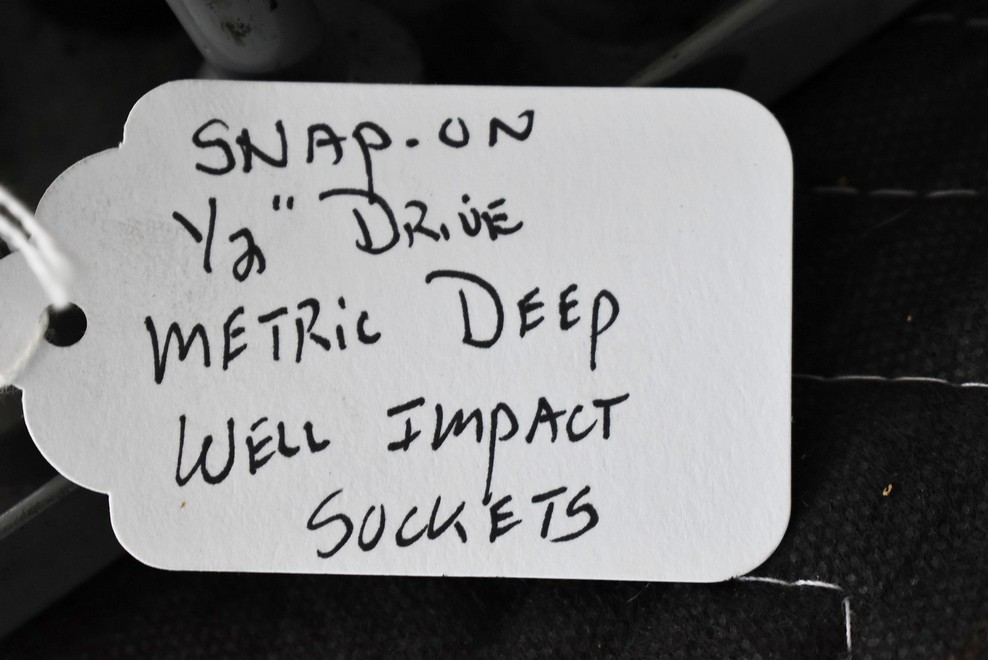 SNAP-ON
1/2" DRIVE
METRIC DEEP
WELL IMPACT
SOCKETS